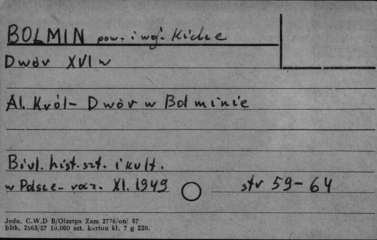 BOLMIN pow. i woj. Kielce
Dwór XVI w
Al. Król - Dwór w Bolminie
Biul. hist. szt. i kult.
w Polsce - rocz. XI. 1949 str 59-64
Jedn. C.W.D B/Olsztyn Zam 2776/on/ 57
Bltk. 2563/57 10.000 szt. karton kl. 7 g 220.